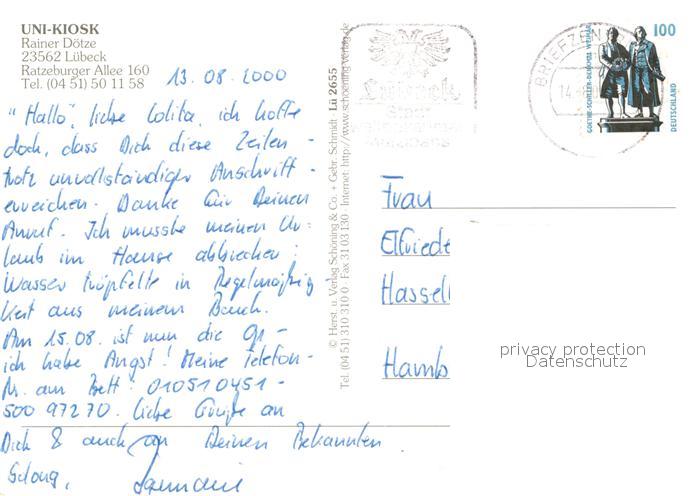 UNI-KIOSK
Rainer Dötze
23562 Lübeck
Ratzeburger Allee 160
Tel. (04 51) 50 11 58
13.08.2000
"Hallo", liebe Lolita, ich hoffe
doch, dass Dich diese Zeilen -
trotz unvollständiger Anschrift -
erreichen. Danke für Deinen
Anruf. Ich musste meinen Ur-
laub im Hause abbrechen:
Wasser tröpfelte in Regelmäßig-
keit aus meinem Bauch.
Am 15.08. ist nun die Op -
ich habe Angst! Meine Telefon-
Nr. am Bett: 010510451-
500 97270. Liebe Grüße an
Dich & auch an Deinen Bekannten.
Solong,
© Herst. u. Verlag Schöning & Co. + Gebr. Schmidt Lü 2655
Tel. (04 51) 310 310 0 · Fax 31 03 130 · Internet: http://www.schoening-verlag.de
Lübeck
BRIEFZEN
14.-8
GOETHE-SCHILLER-DENKMAL WEIMAR
100
DEUTSCHLAND
Frau
Elfriede
Hassel
Hamb
privacy protection
Datenschutz